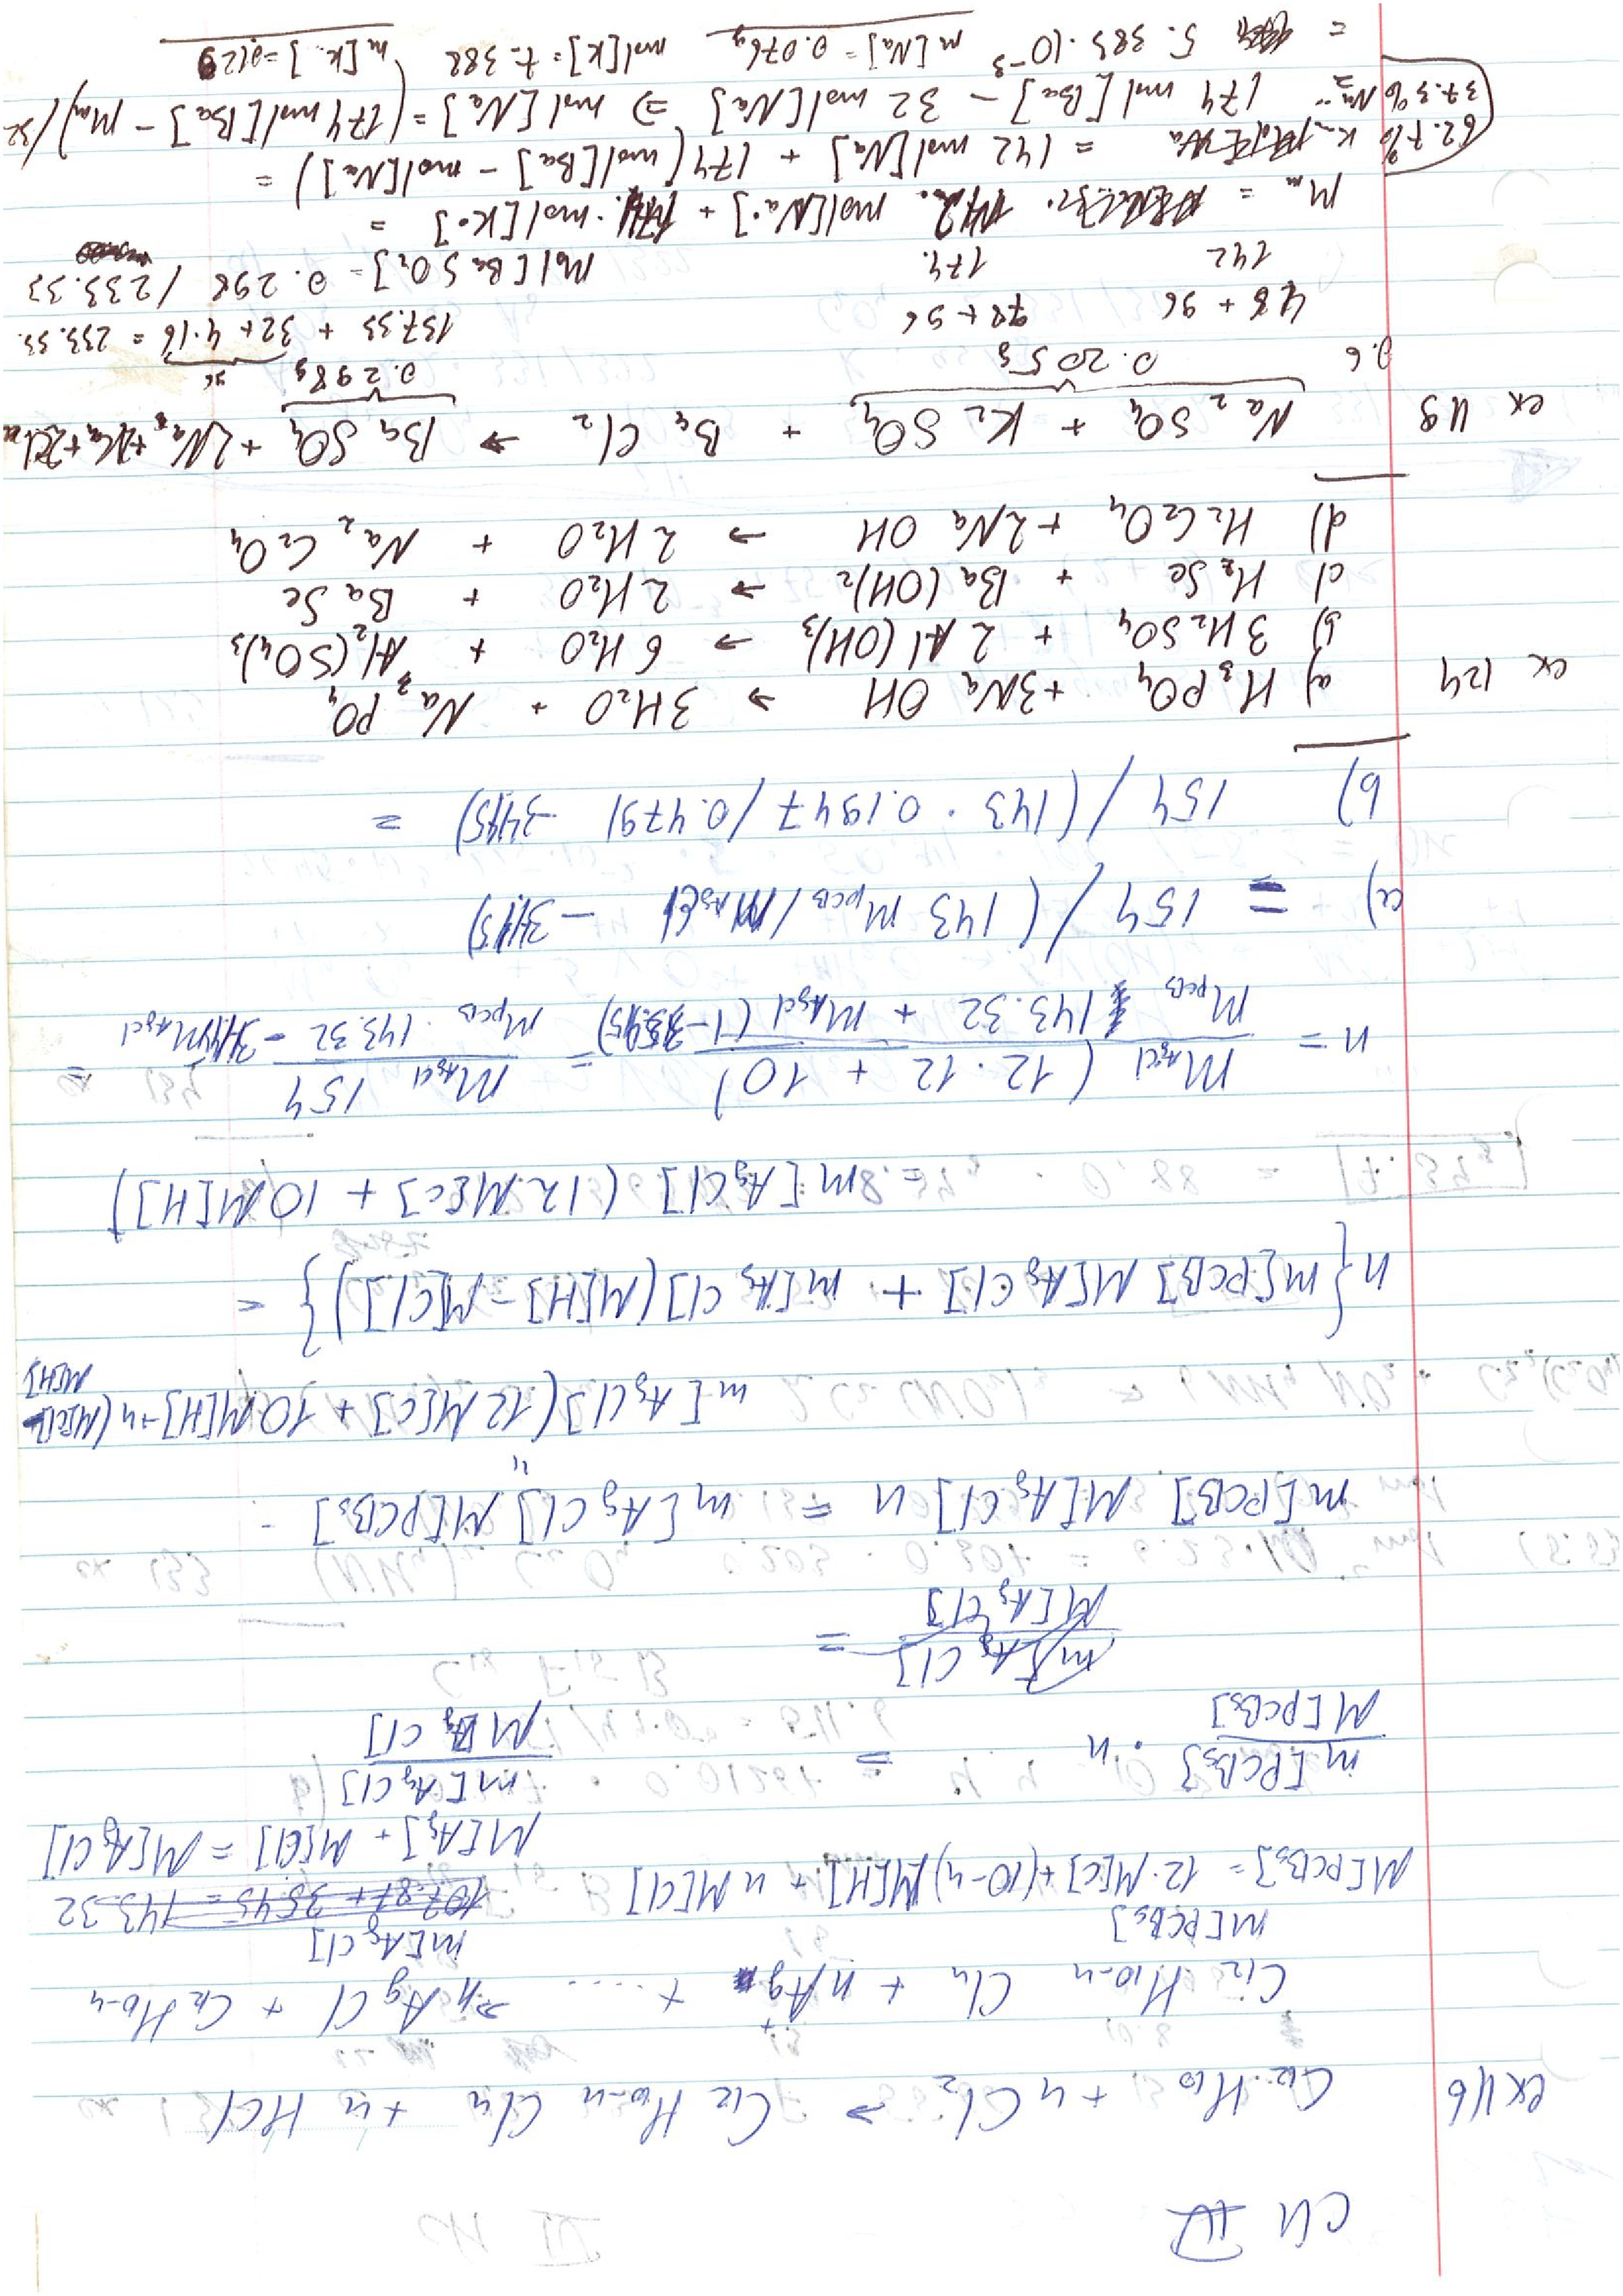 CH IV
ex 116 C12 H10 + n Cl2 → C12 H10-n Cln + n HCl
C12 H10-n Cln + n Ag+ + .... → n AgCl + C12 H10-n
m[PCBs] m[AgCl]
107.87 + 35.45 = 143.32
M[PCBs] = 12·M[C] + (10-n) M[H] + n M[Cl]
M[Ag] + M[Cl] = M[AgCl]
m[PCBs] / M[PCBs] · n = m[AgCl] / M[AgCl]
m[AgCl] / M[AgCl] =
m[PCB] M[AgCl] n = m[AgCl] M[PCBs] =
m[AgCl] (12 M[C] + 10 M[H] + n (M[Cl] - M[H]
n { m[PCB] M[AgCl] + m[AgCl] (M[H] - M[Cl]) } =
= m[AgCl] (12 M[C] + 10 M[H])
n = mAgCl (12·12 + 10) / mPCB 143.32 + mAgCl (1 - 35.45) = mAgCl 154 / mPCB · 143.32 - mAgCl =
a) = 154 / (143 mPCB / mAgCl - )
b) 154 / (143 · 0.1947 / 0.4791 - ) =
ex 124 a) H3PO4 + 3NaOH → 3H2O + Na3PO4
b) 3H2SO4 + 2Al(OH)3 → 6H2O + Al2(SO4)3
c) H2Se + Ba(OH)2 → 2H2O + BaSe
d) H2C2O4 + 2NaOH → 2H2O + Na2C2O4
ex 118 Na2SO4 + K2SO4 + BaCl2 → BaSO4 + 2Na
0.6 0.205g 0.298g 96
48 + 96 78 + 96 137.33 + 32 + 4·16 = 233.33
142 174 Mol[BaSO4] = 0.298 / 233.33
Mm = 142 · mol[Na] + 174 · mol[K] =
62.7% K = 142 mol[Na] + 174 (mol[Ba] - mol[Na]) =
37.3% Na 174 mol[Ba] - 32 mol[Na] ⇒ mol[Na] = (174 mol[Ba] - Mm) / 32
= 5.385·10-3 m[Na] = 0.076g mol[K] = 7.388 m[K] =